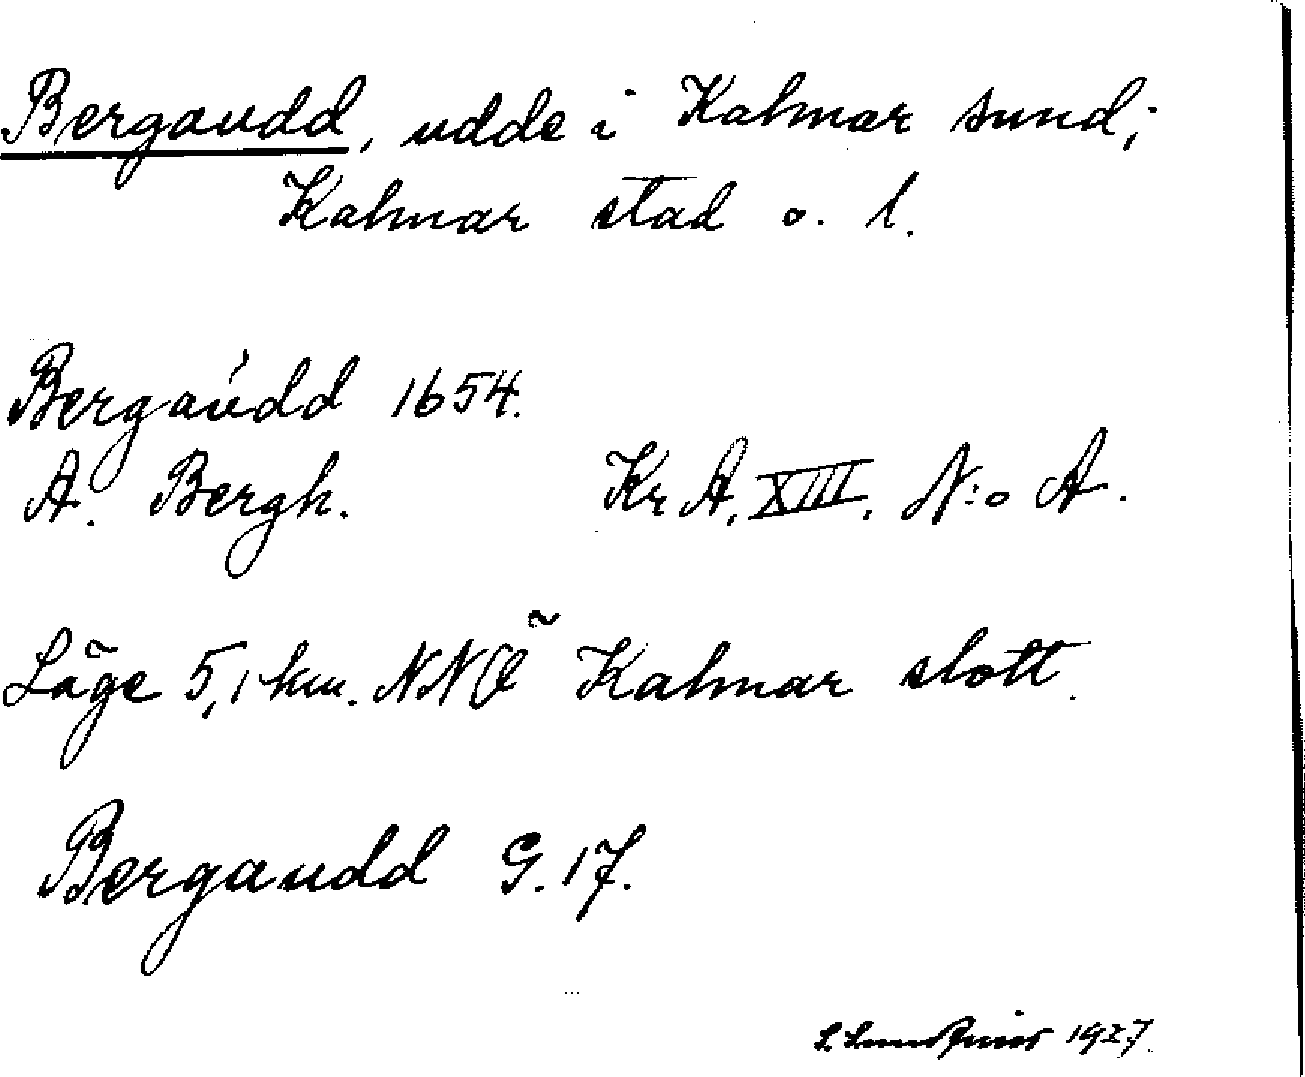 Bergaudd, udde i Kalmar sund;
Kalmar stad o. l.
Bergaúdd 1654.
A. Bergh. Kr A. XIII. N:o A.
Läge 5,1 km. NNÖ Kalmar slott.
Bergaudd G. 17.
1927.